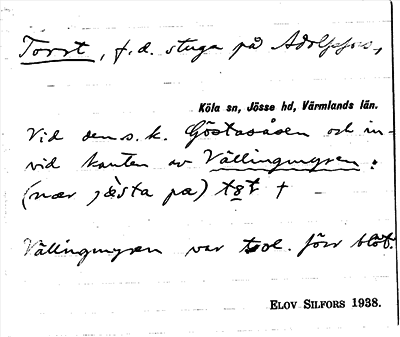 Torst, f.d. stuga på Adolfsfors,
Köla sn, Jösse hd, Värmlands län.
Vid den s.k. Göstasåsen och in-
vid kanten av Vällingmyren.
(nær jæsta pa) tɵt †
Vällingmyren var tol. förr blöt.
ELOV SILFORS 1938.